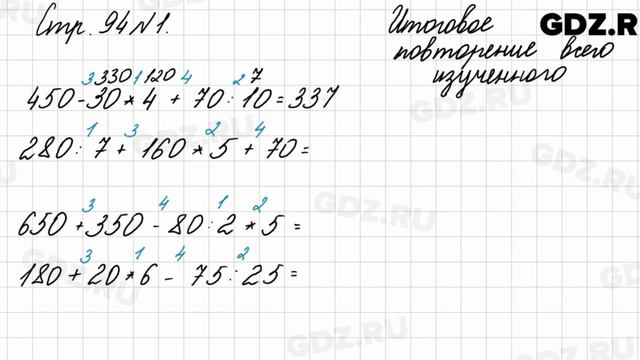 Стр. 94 №1.
Итоговое
повторение всего
изученного
GDZ.R
3 330 1 120 4 2 7
450-30*4 + 70:10=337
1 3 2 4
280:7+160*5+70=
3 4 1 2
650+350-80:2*5=
3 1 4 2
180+20*6-75:25=
GDZ.RU
GDZ.RU
GDZ.RU
GDZ.RU
GDZ.RU
GDZ.RU